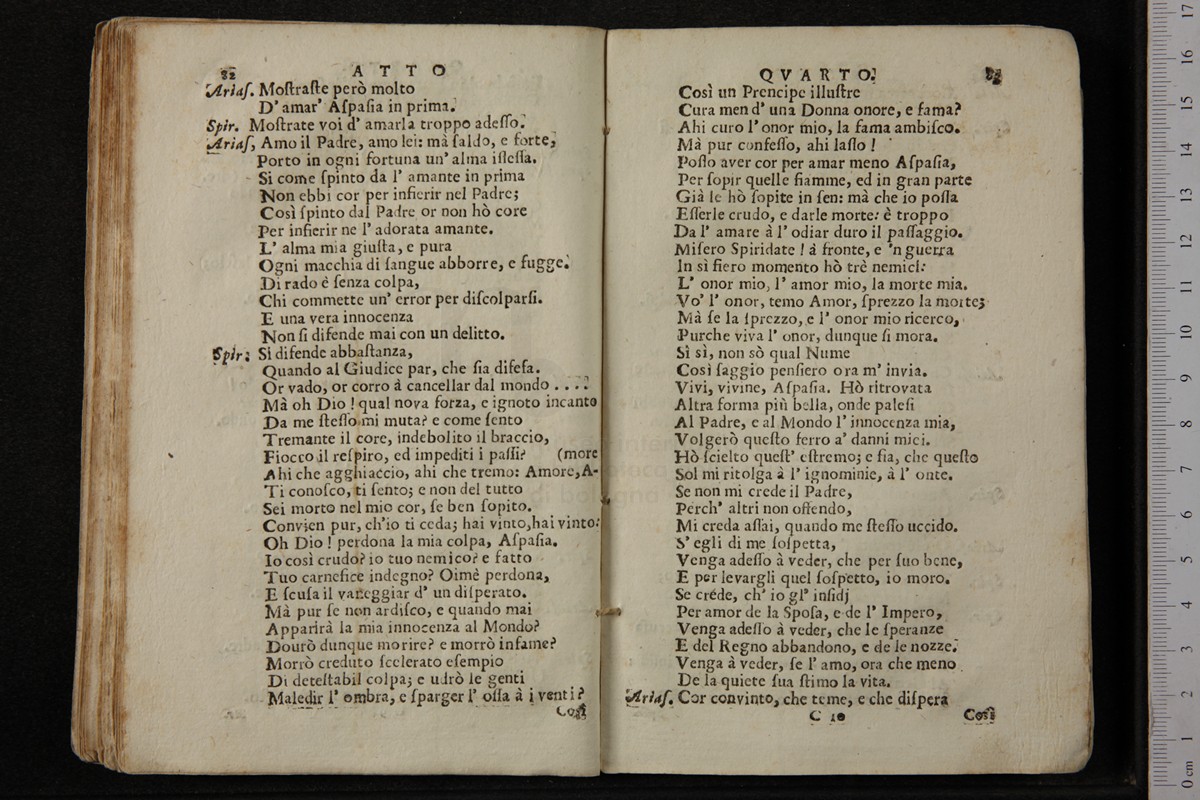 82 ATTO
Ariaſ. Moſtraſte però molto
D' amar' Aſpaſia in prima.
Spir. Moſtrate voi d' amarla troppo adeſſo.
Ariaſ, Amo il Padre, amo lei: mà ſaldo, e forte,
Porto in ogni fortuna un' alma iſteſſa.
Si come ſpinto da l' amante in prima
Non ebbi cor per infierir nel Padre;
Così ſpinto dal Padre or non hò core
Per infierir ne l' adorata amante.
L' alma mia giuſta, e pura
Ogni macchia di ſangue abborre, e fugge.
Di rado è ſenza colpa,
Chi commette un' error per diſcolparſi.
E una vera innocenza
Non ſi difende mai con un delitto.
Spir: Si difende abbaſtanza,
Quando al Giudice par, che ſia difeſa.
Or vado, or corro à cancellar dal mondo ....
Mà oh Dio ! qual nova forza, e ignoto incanto
Da me ſteſſo mi muta? e come ſento
Tremante il core, indebolito il braccio,
Fiocco il reſpiro, ed impediti i paſſi? (more
Ahi che agghiaccio, ahi che tremo: Amore, A-
Ti conoſco, ti ſento; e non del tutto
Sei morto nel mio cor, ſe ben ſopito.
Convien pur, ch'io ti ceda; hai vinto, hai vinto:
Oh Dio ! perdona la mia colpa, Aſpaſia.
Io così crudo? io tuo nemico? e fatto
Tuo carnefice indegno? Oimè perdona,
E ſcuſa il vaneggiar d' un diſperato.
Mà pur ſe non ardiſco, e quando mai
Apparirà la mia innocenza al Mondo?
Dourò dunque morire? e morrò infame?
Morrò creduto ſcelerato eſempio
Di deteſtabil colpa; e udrò le genti
Maledir l' ombra, e ſparger l' oſſa à i venti?
Così
QVARTO. 83
Così un Prencipe illuſtre
Cura men d' una Donna onore, e fama?
Ahi curo l' onor mio, la fama ambiſco.
Mà pur confeſſo, ahi laſſo !
Poſſo aver cor per amar meno Aſpaſia,
Per ſopir quelle fiamme, ed in gran parte
Già le hò ſopite in ſen: mà che io poſſa
Eſſerle crudo, e darle morte: è troppo
Da l' amare à l' odiar duro il paſſaggio.
Miſero Spiridate ! à fronte, e 'n guerra
In sì fiero momento hò trè nemici:
L' onor mio, l' amor mio, la morte mia.
Vo' l' onor, temo Amor, ſprezzo la morte;
Mà ſe la ſprezzo, e l' onor mio ricerco,
Purche viva l' onor, dunque ſi mora.
Sì sì, non sò qual Nume
Così ſaggio penſiero ora m' invia.
Vivi, vivine, Aſpaſia. Hò ritrovata
Altra forma più bella, onde paleſi
Al Padre, e al Mondo l' innocenza mia,
Volgerò queſto ferro a' danni miei.
Hò ſcielto queſt' eſtremo; e ſia, che queſto
Sol mi ritolga à l' ignominie, à l' onte.
Se non mi crede il Padre,
Perch' altri non offendo,
Mi creda aſſai, quando me ſteſſo uccido.
S' egli di me ſoſpetta,
Venga adeſſo à veder, che per ſuo bene,
E per levargli quel ſoſpetto, io moro.
Se créde, ch' io gl' inſidj
Per amor de la Spoſa, e de l' Impero,
Venga adeſſo à veder, che le ſperanze
E del Regno abbandono, e de le nozze.
Venga à veder, ſe l' amo, ora che meno
De la quiete ſua ſtimo la vita.
Ariaſ. Cor convinto, che teme, e che diſpera
C 10 Così